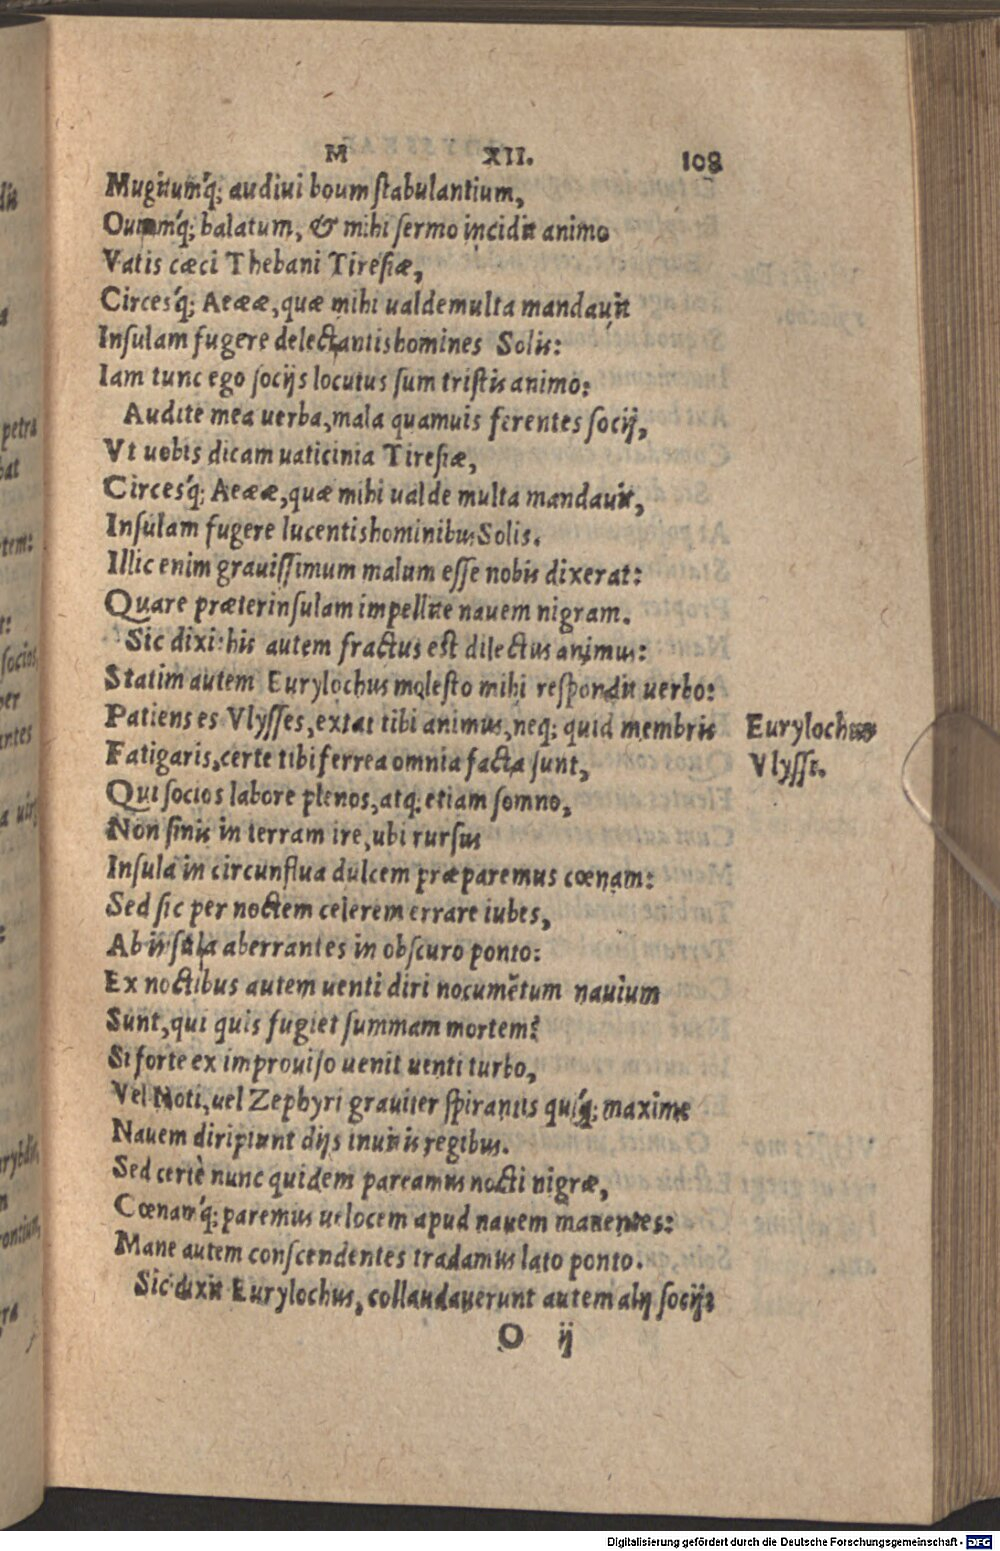 M XII. 108
Mugitumq́; audiui boum stabulantium,
Ouiumq́; balatum, & mihi sermo incidit animo
Vatis cæci Thebani Tiresiæ,
Circesq́; Aeææ, quæ mihi ualde multa mandauit
Insulam fugere delectantis homines Solis:
Iam tunc ego socijs locutus sum tristis animo:
Audite mea uerba, mala quamuis ferentes socij,
Vt uobis dicam uaticinia Tiresiæ,
Circesq́; Aeææ, quæ mihi ualde multa mandauit,
Insulam fugere lucentis hominibus Solis.
Illic enim grauissimum malum esse nobis dixerat:
Quare præter insulam impellite nauem nigram.
Sic dixi: his autem fractus est dilectus animus:
Statim autem Eurylochus molesto mihi respondit uerbo:
Patiens es Vlysses, extat tibi animus, neq; quid membris
Eurylochus
Fatigaris, certe tibi ferrea omnia facta sunt,
Vlyssi.
Qui socios labore plenos, atq; etiam somno,
Non sinis in terram ire, ubi rursus
Insula in circunflua dulcem præparemus cœnam:
Sed sic per noctem celerem errare iubes,
Ab insula aberrantes in obscuro ponto:
Ex noctibus autem uenti diri nocumẽtum nauium
Sunt, qui quis fugiet summam mortem?
Si forte ex improuiso uenit uenti turbo,
Vel Noti, uel Zephyri grauiter spirantis quiq́; maxime
Nauem diripiunt dijs inuitis regibus.
Sed certè nunc quidem pareamus nocti nigræ,
Cœnamq́; paremus uelocem apud nauem manentes:
Mane autem conscendentes tradamus lato ponto.
Sic dixit Eurylochus, collaudauerunt autem alij socij:
O ij
petra
socios
Digitalisierung gefördert durch die Deutsche Forschungsgemeinschaft - DFG